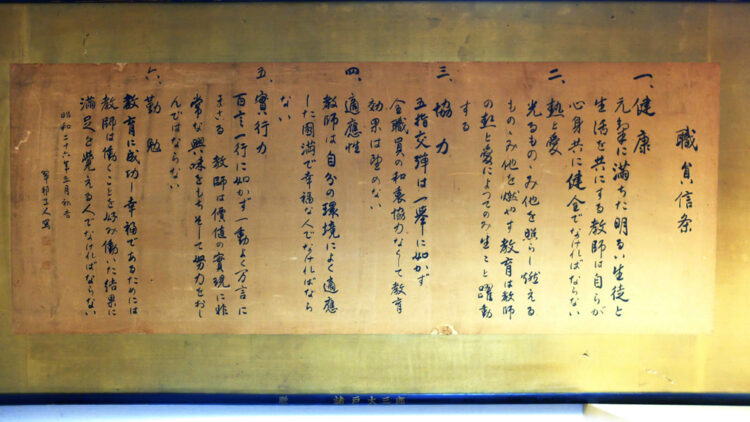 職員信条
一、健康
元気に満ちた明るい生徒と
生活を共にする教師は自らが
心身共に健全でなければならない
二、熱と愛
光るものゝみ他を照らし燃える
ものゝみ他を燃やす教育は教師
の熱と愛によつてのみ生こと躍動
する
三、協力
五指交弾は一拳に如かず
全職員の和衷協力なくて教育
効果は望めない
四、適應性
教師は自分の環境によく適應
した圓満で幸福な人でなければなら
ない
五、實行力
百言一行に如かず一動よく万言に
まさる 教師は價値の實現に非
常な興味をもちそして努力をおし
んではならない
六、勤勉
教育に成功し幸福であるためには
教師は働くことを好み働いた結果に
満足を覚える人でなければならない
昭和二十六年三月
諸戸太三郎